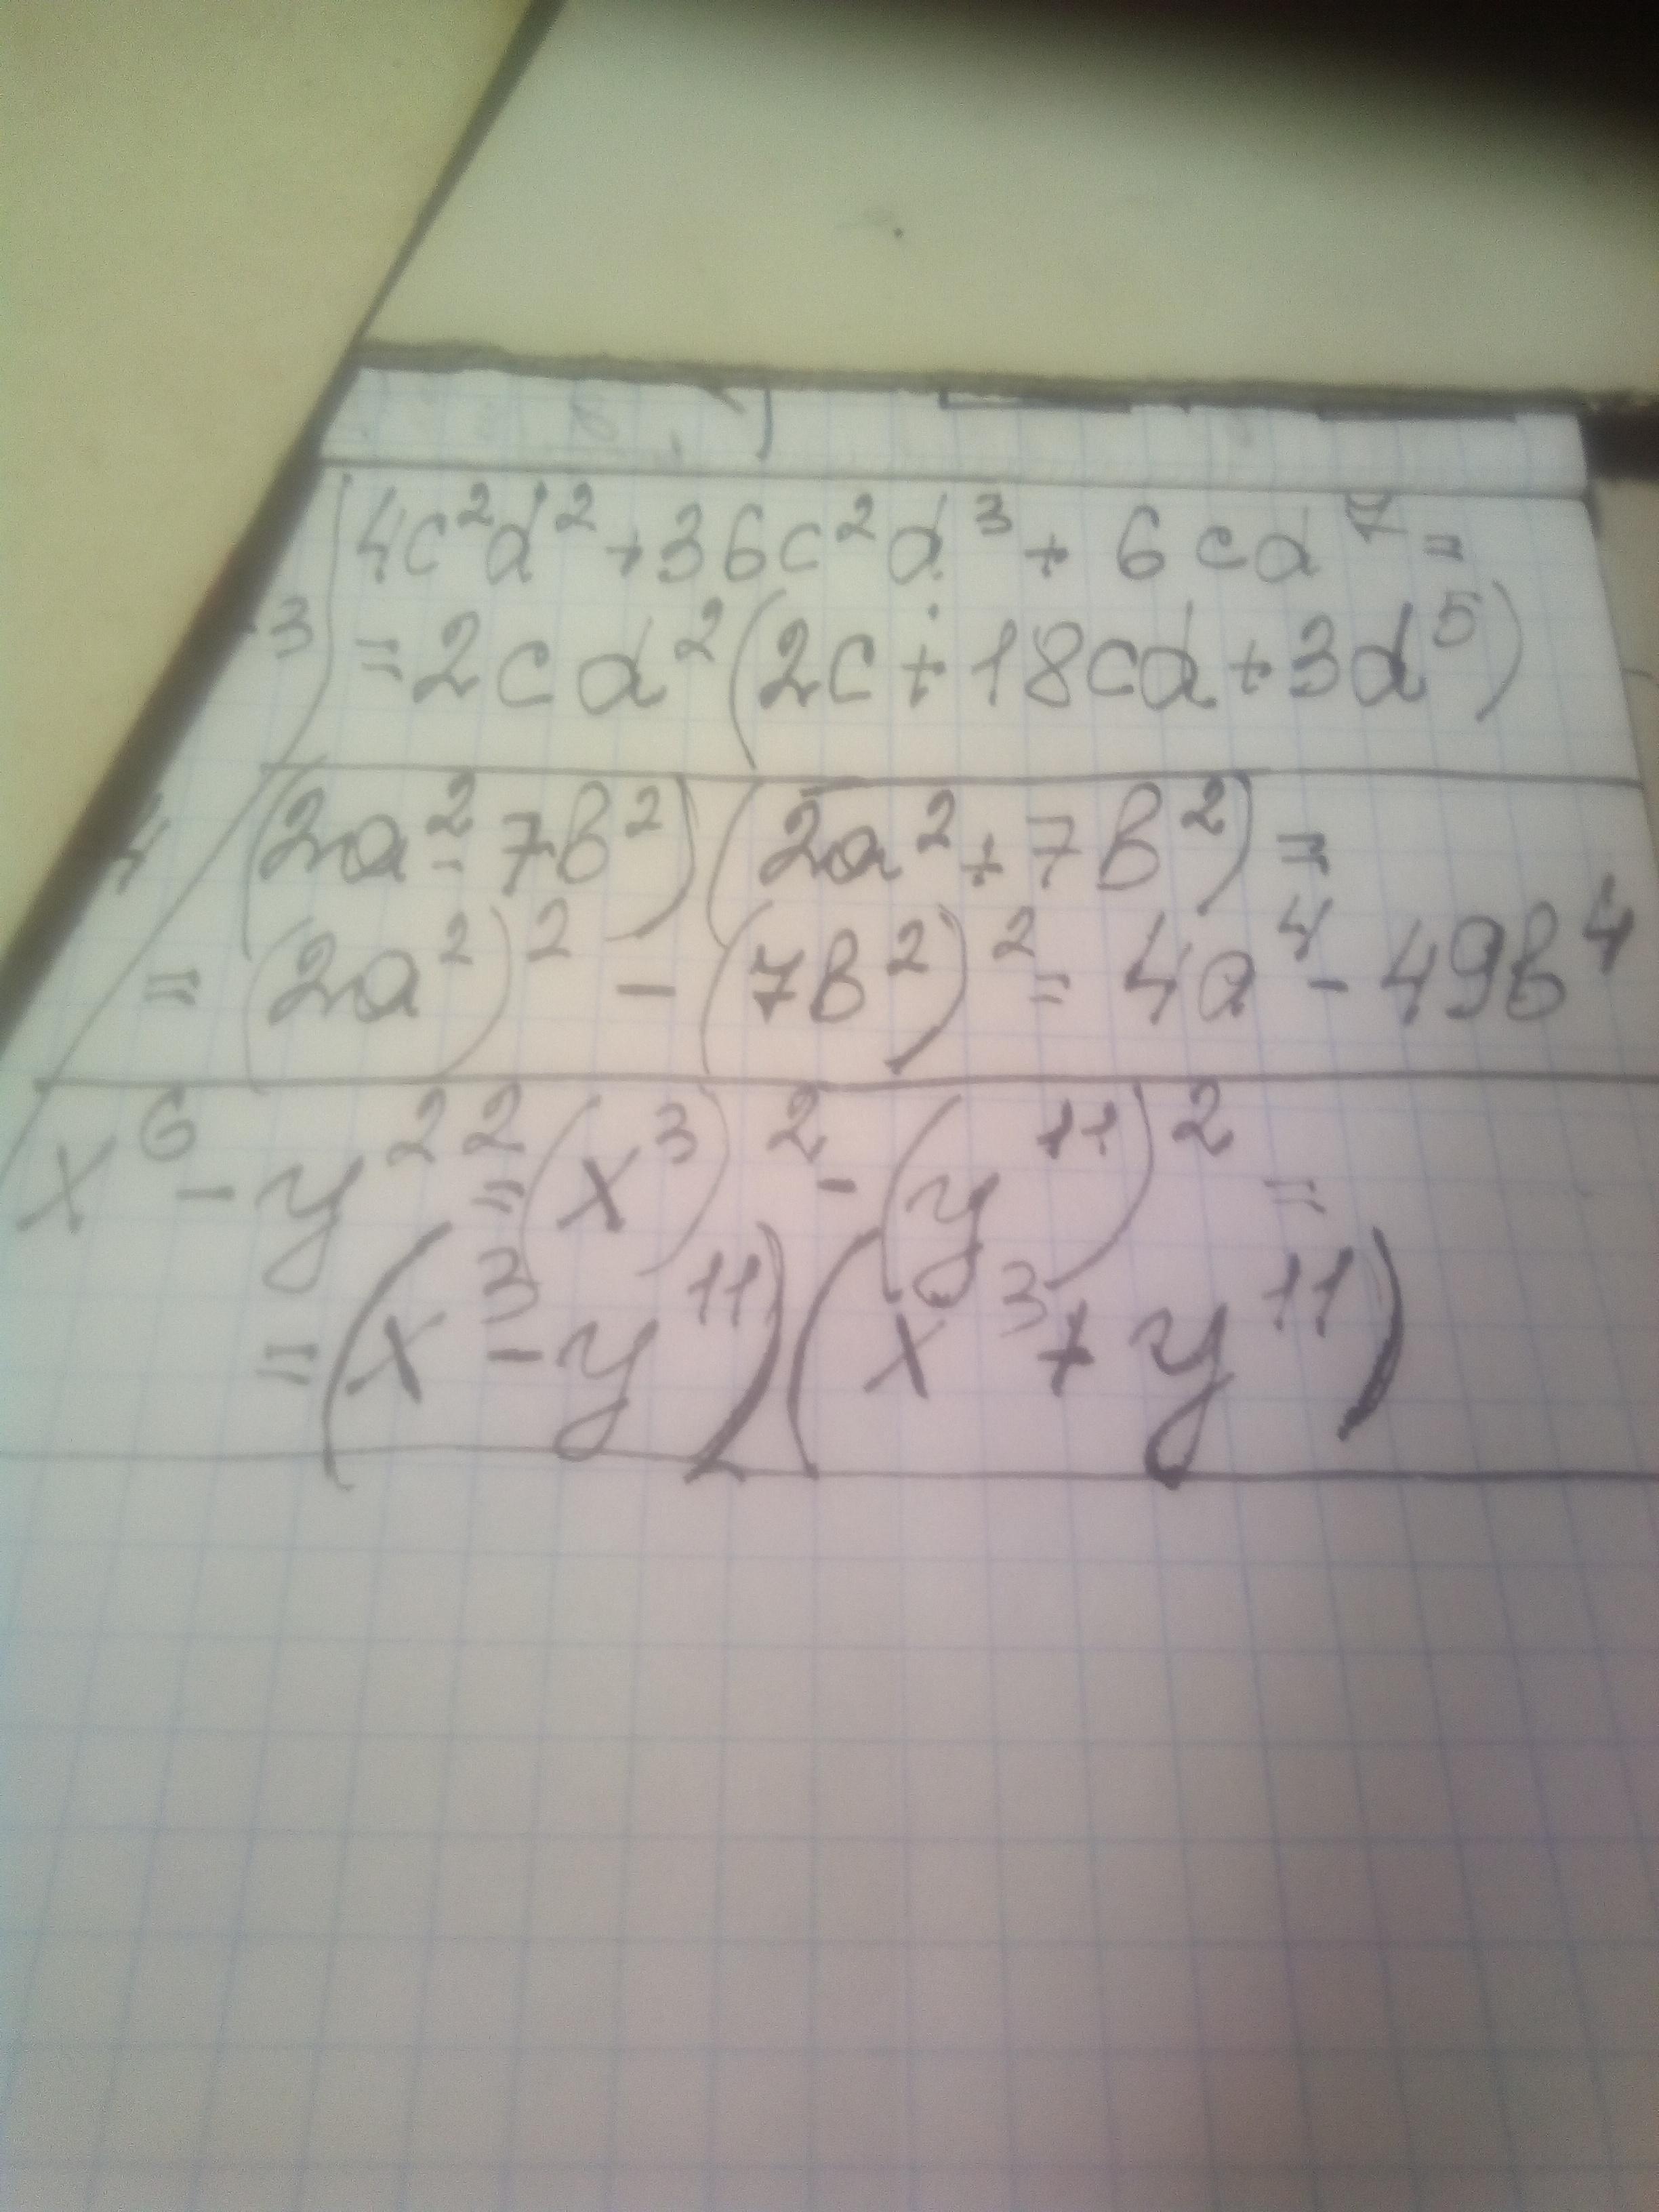 4c²d²+36c²d³+6cd⁷=
3 =2cd²(2c+18cd+3d⁵)
4 (2a²-7b²)(2a²+7b²)=
=(2a²)²-(7b²)²=4a⁴-49b⁴
x⁶-y²²=(x³)²-(y¹¹)²=
=(x³-y¹¹)(x³+y¹¹)